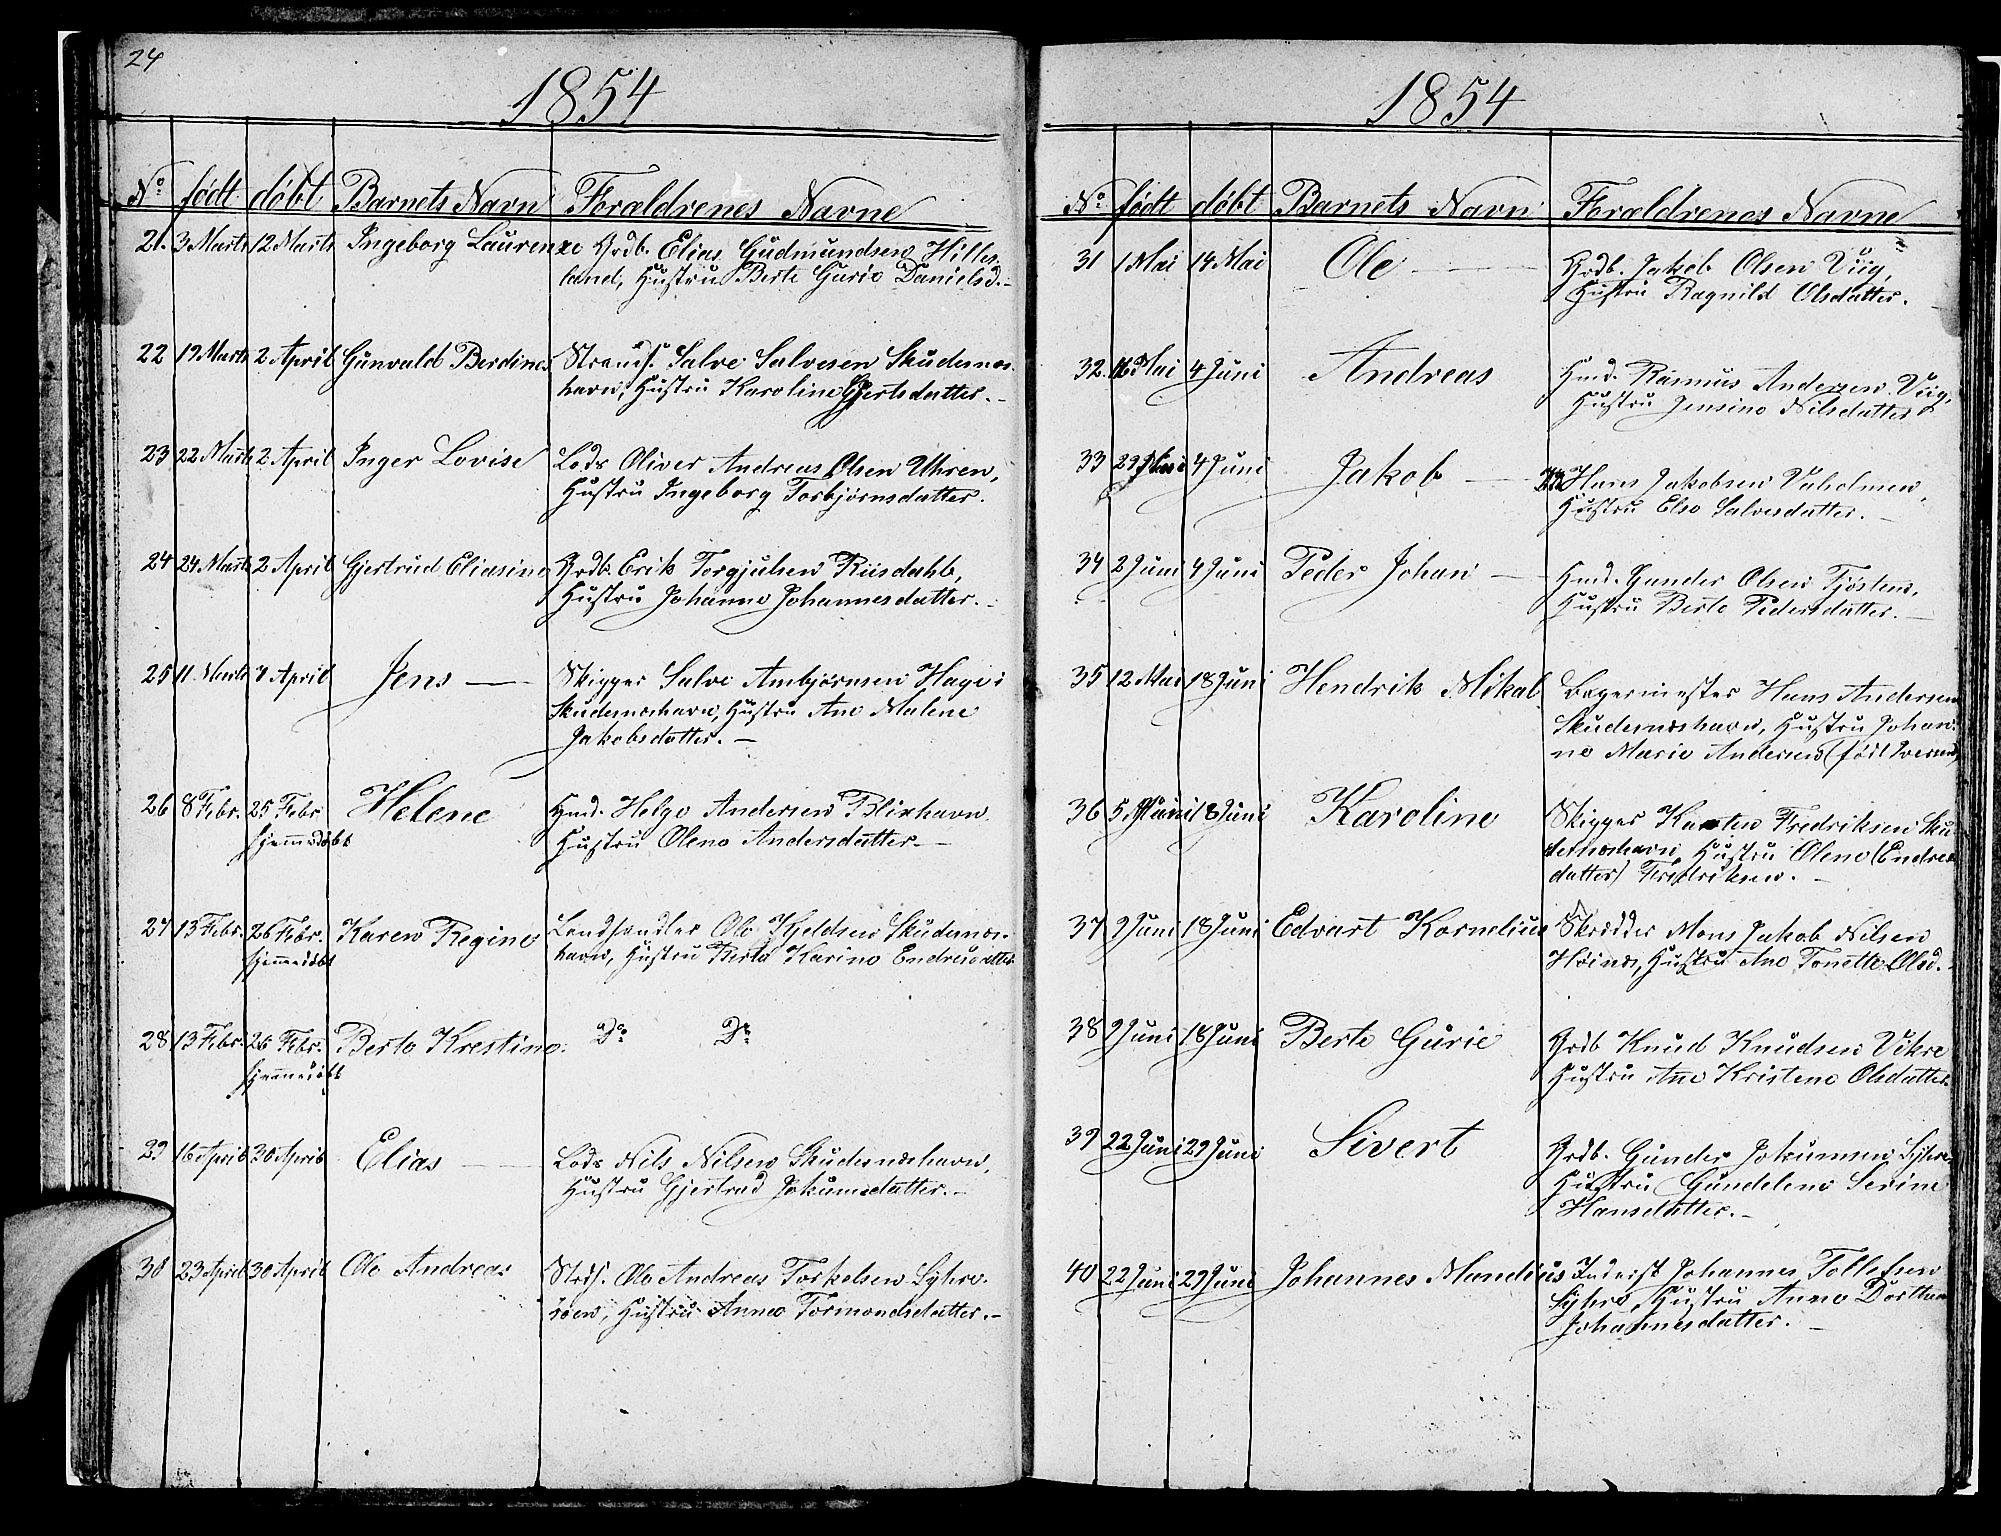 24
1854
No. født døbt Barnets Navn Forældrenes Navne
21. 3 Marts 12 Marts Ingeborg Laurenze Grdb. Elias Gudmundsen Hilles-
land, Hustru Berte Gurie Danielsd.-
22 19 Marts 2 April Gunvald Berdines Strands. Salve Salvesen Skudenæs-
havn, Hustru Karoline Gjertsdatter.-
23 22 Marts 2 April Inger Lovise Lods Oliver Andreas Olsen Uhren,
Hustru Ingeborg Torbjørnsdatter.
24 24 Marts 2 April Gjertrud Eliasine Grdb. Erik Torgjulsen Riisdahl,
Hustru Johanne Johannesdatter.-
25 11 Marts 7 April Jens — Skipper Salve Ambjørnsen Hage i
Skudenæshavn, Hustru Ane Malene
Jakobsdatter.-
26 8 Febr. 25 Febr. Helene Hmd. Helge Andersen Blixhavn
hjemmedøbt Hustru Olene Andersdatter.-
27 13 Febr. 26 Febr. Karen Regine Landhandler Ole Kjeldsen Skudenæs-
hjemmedøbt havn, Hustru Berta Karine Endresdatter
28 13 Febr. 26 Febr. Berte Krestine. Do Do
hjemmedøbt
29 16 April 30 April Elias — Lods Nils Nilsen Skudenæshavn,
Hustru Gjertrud Jokumsdatter.-
30 23 April 30 April Ole Andreas Strds. Ole Andreas Torkelsen Syhre-
Hustru Anne Tormondsdatter.-
1854
No. født døbt Barnets Navn Forældrenes Navne
31 1 Mai 14 Mai Ole — Grdb. Jakob Olsen Viig,
Hustru Ragnild Olsdatter.
32. 16 Mai 4 Juni Andreas Hmd. Rasmus Andersen Viig,
Hustru Jensine Nilsdatter
33 29 Mai 4 Juni Jakob — Hans Jakobsen Vaholmen,
Hustru Else Salvesdatter.-
34 2 Juni 4 Juni Peder Johan — Hmd. Gunder Olsen Tjøstem,
Hustru Berte Pedersdatter.-
35 12 Mai 18 Juni Hendrik Mikal Bagermester Hans Andersen
Skudenæshavn, Hustru Johan-
ne Marie Andersen (født Iversen)
36 5 Juni 18 Juni Karoline Skipper Karsten Fredriksen Sku-
denæshavn Hustru Olene (Endres-
datter) Fredriksen.-
37 9 Juni 18 Juni Edvart Kornelius Skredder Mons Jakob Nilsen
Høinæs, Hustru Ane Tonette Olsd.-
38 9 Juni 18 Juni Berte Gurie Grdb Knud Knudsen Vikre
Hustru Ane Kristene Olsdatter
39 22 Juni 29 Juni Sivert Grdb. Gunder Jokumsen Syhre,
Hustru Gundelene Serine
Hansdatter.-
40 22 Juni 29 Juni Johannes Mandius Inderst Johannes Tollefsen
Syhre, Hustru Anne Dorthea
Johannesdatter.-